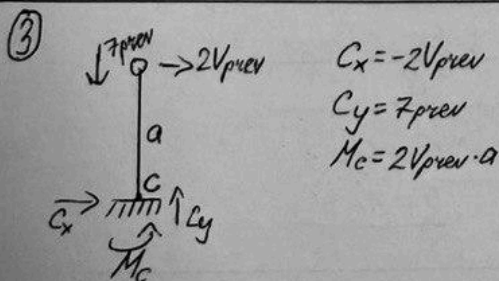 3
7prev
2Vprev
a
C
Cx
Cy
Mc
Cx=-2Vprev
Cy=7prev
Mc=2Vprev·a